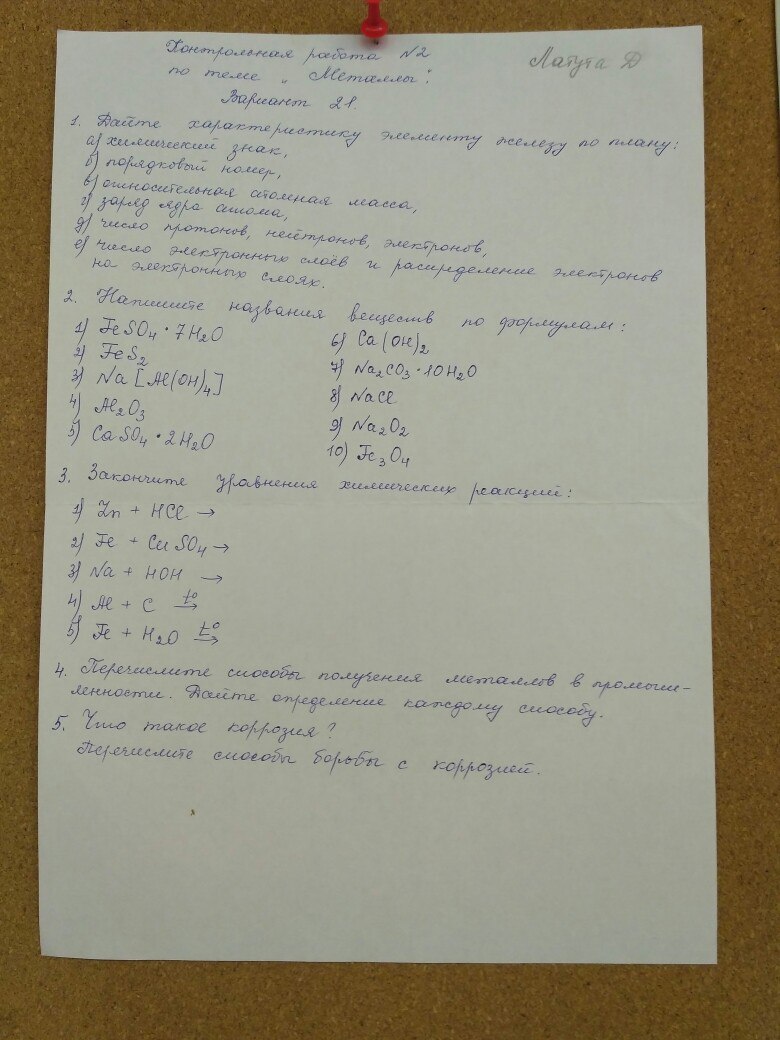 Контрольная работа N2
Латута Д
по теме „Металлы".
Вариант 21.
1. Дайте характеристику элементу железу по плану:
а) химический знак,
б) порядковый номер,
в) относительная атомная масса,
г) заряд ядра атома,
д) число протонов, нейтронов, электронов,
е) число электронных слоёв и распределение электронов
на электронных слоях.
2. Напишите названия веществ по формулам:
1) FeSO₄ · 7H₂O
2) FeS₂
3) Na [Al(OH)₄]
4) Al₂O₃
5) CaSO₄ · 2H₂O
6) Ca(OH)₂
7) Na₂CO₃ · 10H₂O
8) NaCl
9) Na₂O₂
10) Fe₃O₄
3. Закончите уравнения химических реакций:
1) Zn + HCl →
2) Fe + CuSO₄ →
3) Na + HOH →
4) Al + C t° →
5) Fe + H₂O t° →
4. Перечислите способы получения металлов в промыш-
ленности. Дайте определение каждому способу.
5. Что такое коррозия?
Перечислите способы борьбы с коррозией.